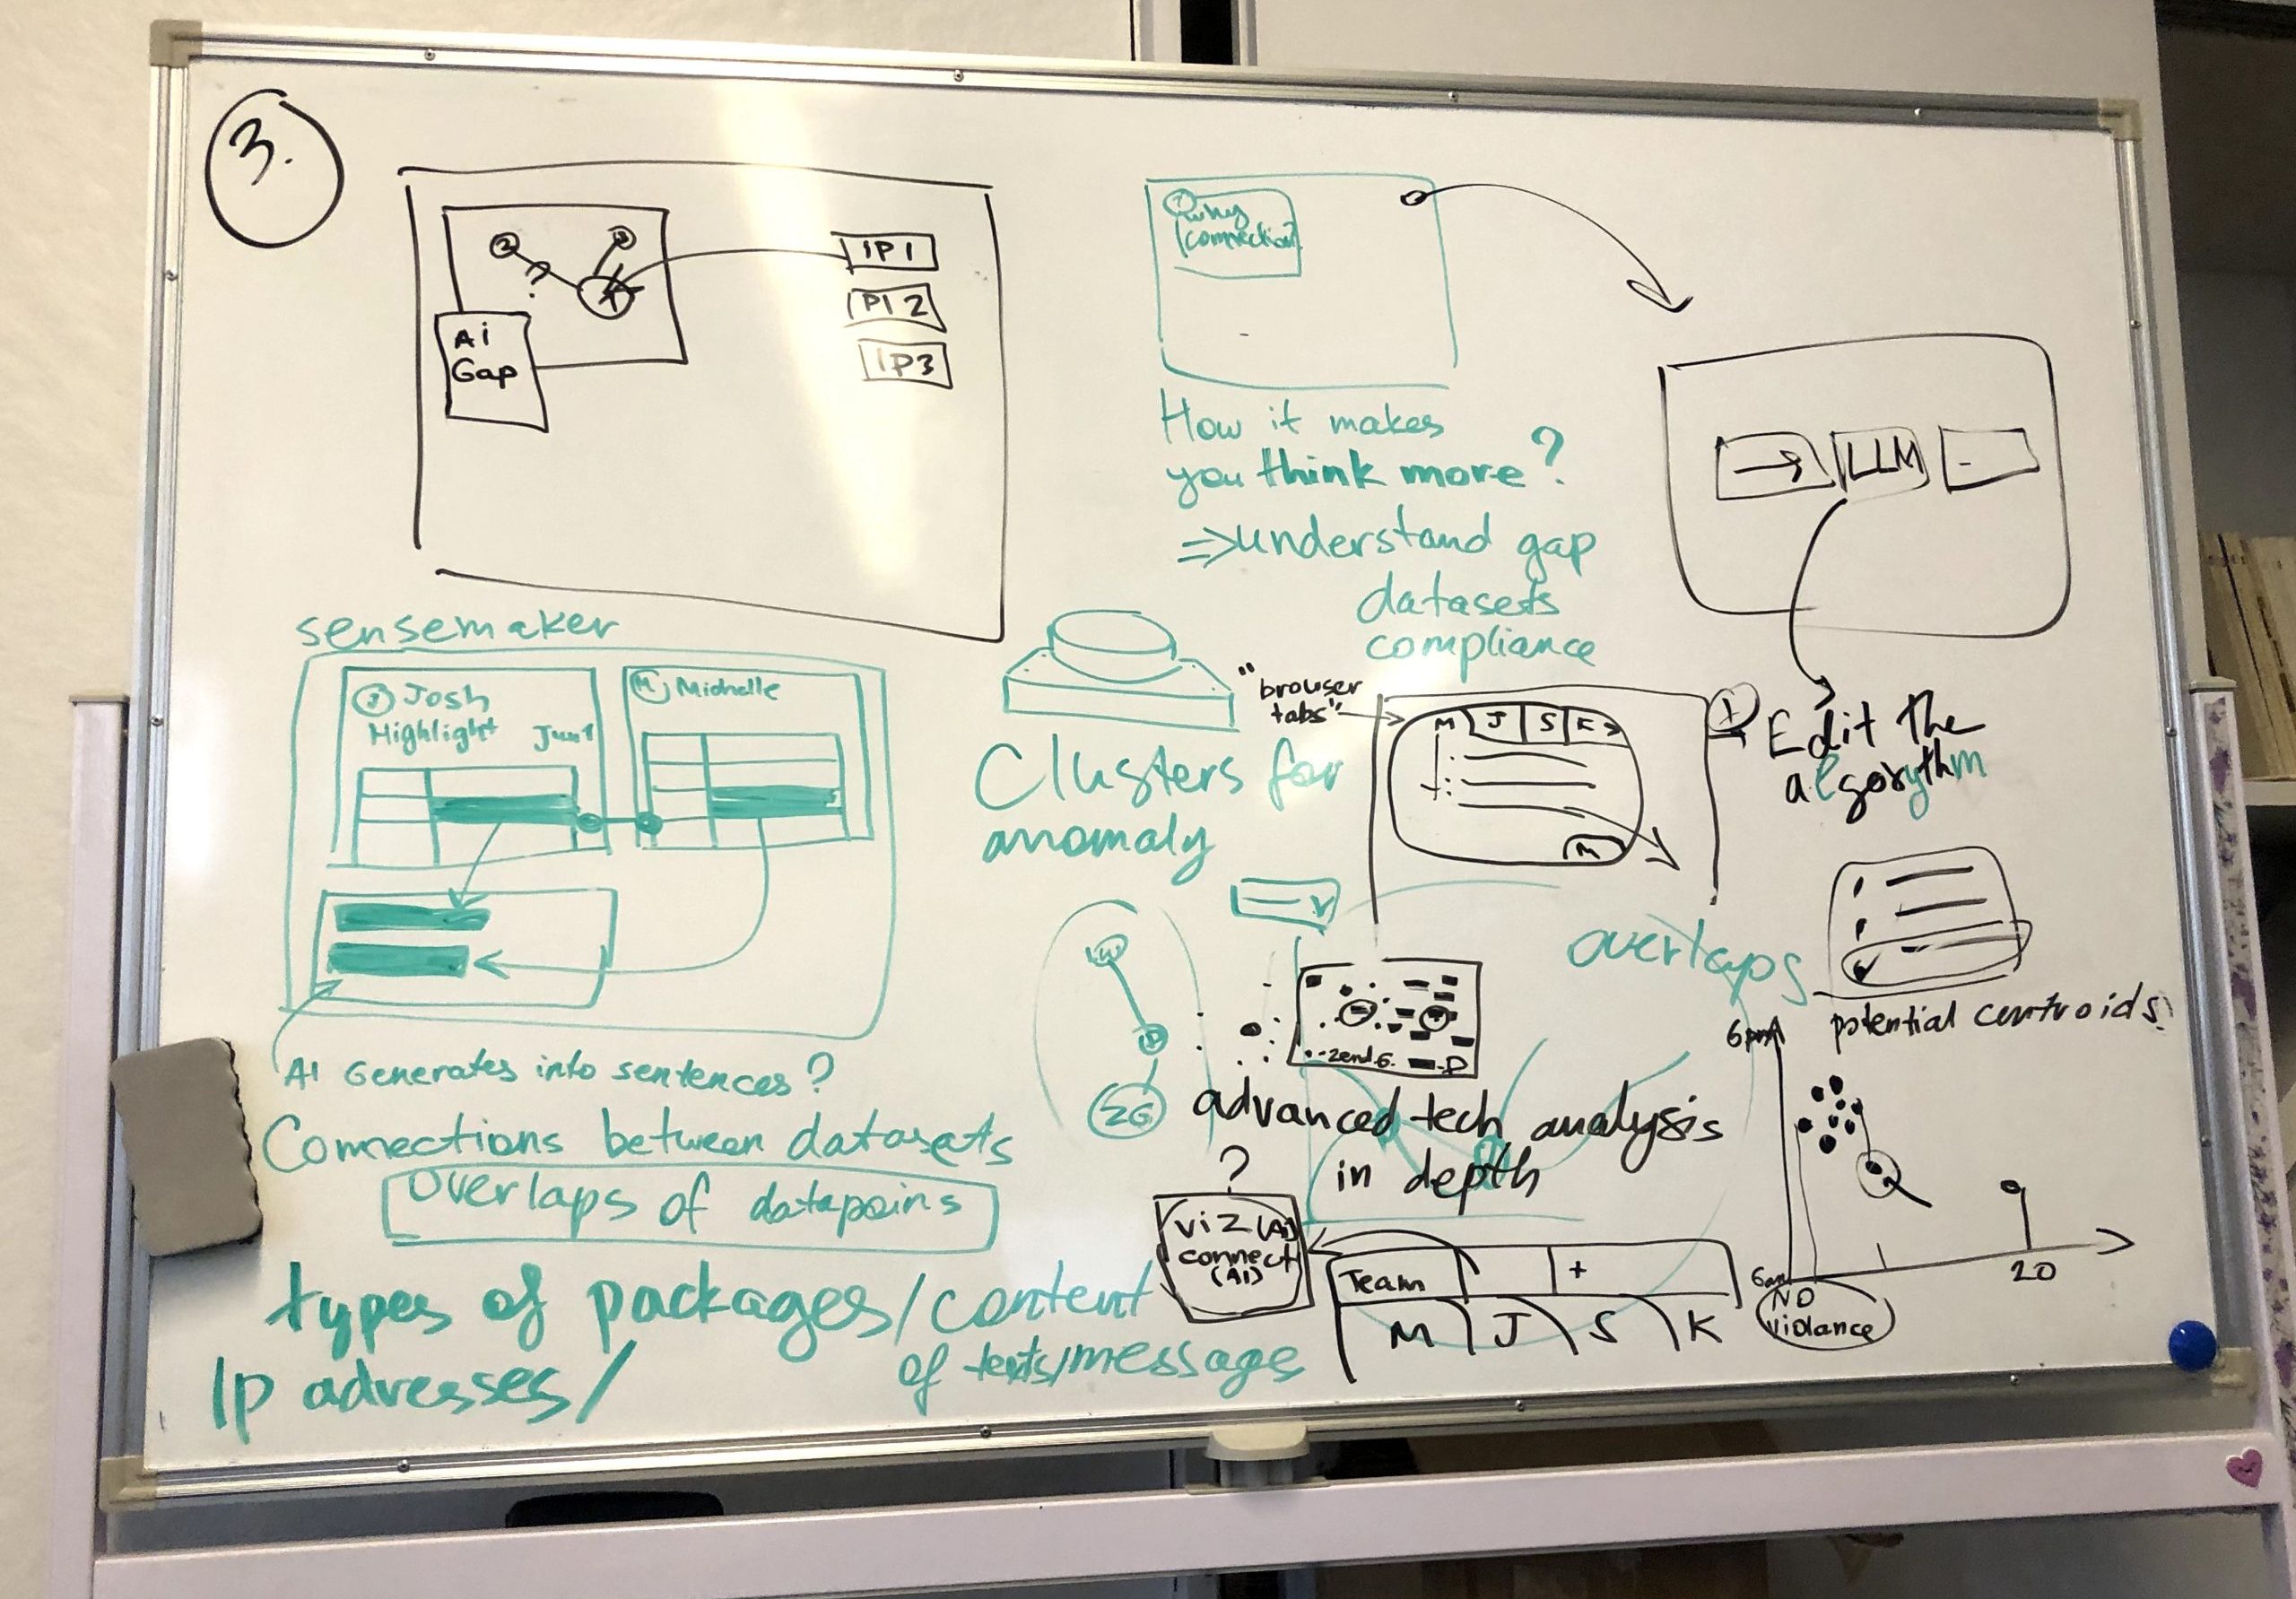 3.
2
3
?
1
IP1
IP2
IP3
Ai
Gap
why
connection?
How it makes
you think more?
⇒understand gap
datasets
compliance
LLM
Edit the
algorythm
sensemaker
J Josh
Highlight
M Michelle
AI Generates into sentences?
Connections between datasets
Overlaps of datapoins
types of packages/content
of texts/message
Ip adresses/
Clusters for
anomaly
"browser
tabs"
M J S K
M
overlaps
potential centroids
ZG
advanced tech analysis
in depth
?
viz (Ai)
connect
(AI)
Team
+
M J S K
6pm
6am
20
NO
violance